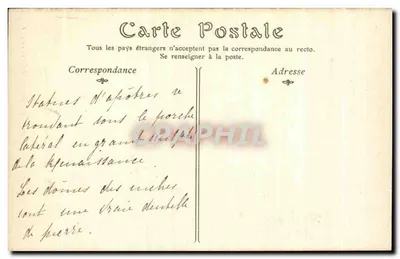 Carte Postale
Tous les pays étrangers n'acceptent pas la correspondance au recto.
Se renseigner à la poste.
Correspondance
Adresse
Statues d'apôtres se
trouvant sous le porche
latéral en grand
de la Renaissance.
Les dômes des niches
sont une vraie dentelle
de pierre.
CPAPHIL